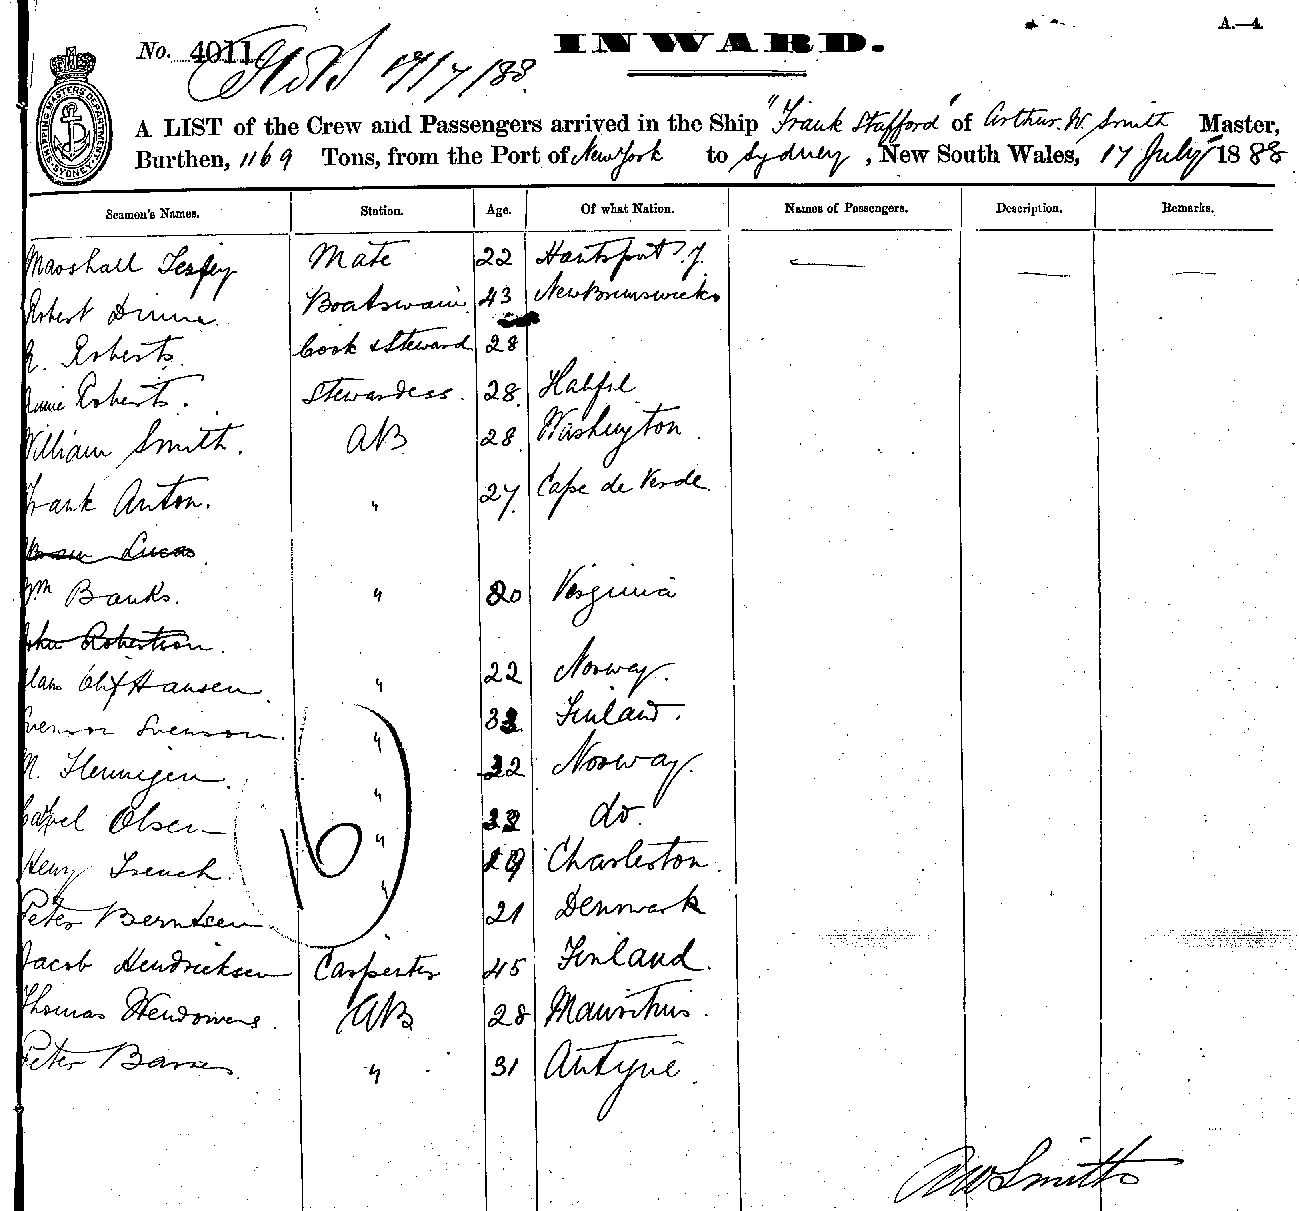 A.—4.
INWARD.
No. 4011
17/7/88.
SHIPPING MASTERS DEPARTMENT SYDNEY
A LIST of the Crew and Passengers arrived in the Ship "Frank Stafford" of Arthur. W. Smith Master,
Burthen, 1169 Tons, from the Port of New York to Sydney, New South Wales, 17 July 1888
Seamen's Names. Station. Age. Of what Nation. Names of Passengers. Description. Remarks.
Marshall Mate 22
Robert Boatswain 43 New Brunswick
Roberts. Cook & Steward 28
Annie Roberts. Stewardess. 28
William Smith. AB 28 Washington
Frank Anton. " 27 Cape de Verde.
Lucas
Wm Banks. " 20 Virginia
John Robertson.
Hansen. " 22 Norway.
Svenson. " Finland.
" Norway.
Olsen " do.
Henry French. " Charleston.
Peter Berntsen 21 Denmark
Jacob Hendricksen Carpenter 45 Finland.
Thomas AB 28 Mauritius.
Peter " 31
16
AW Smith